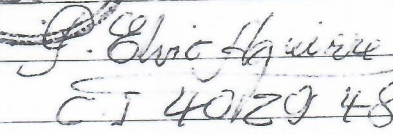 G. Elvio Aguirre
C I 4012948